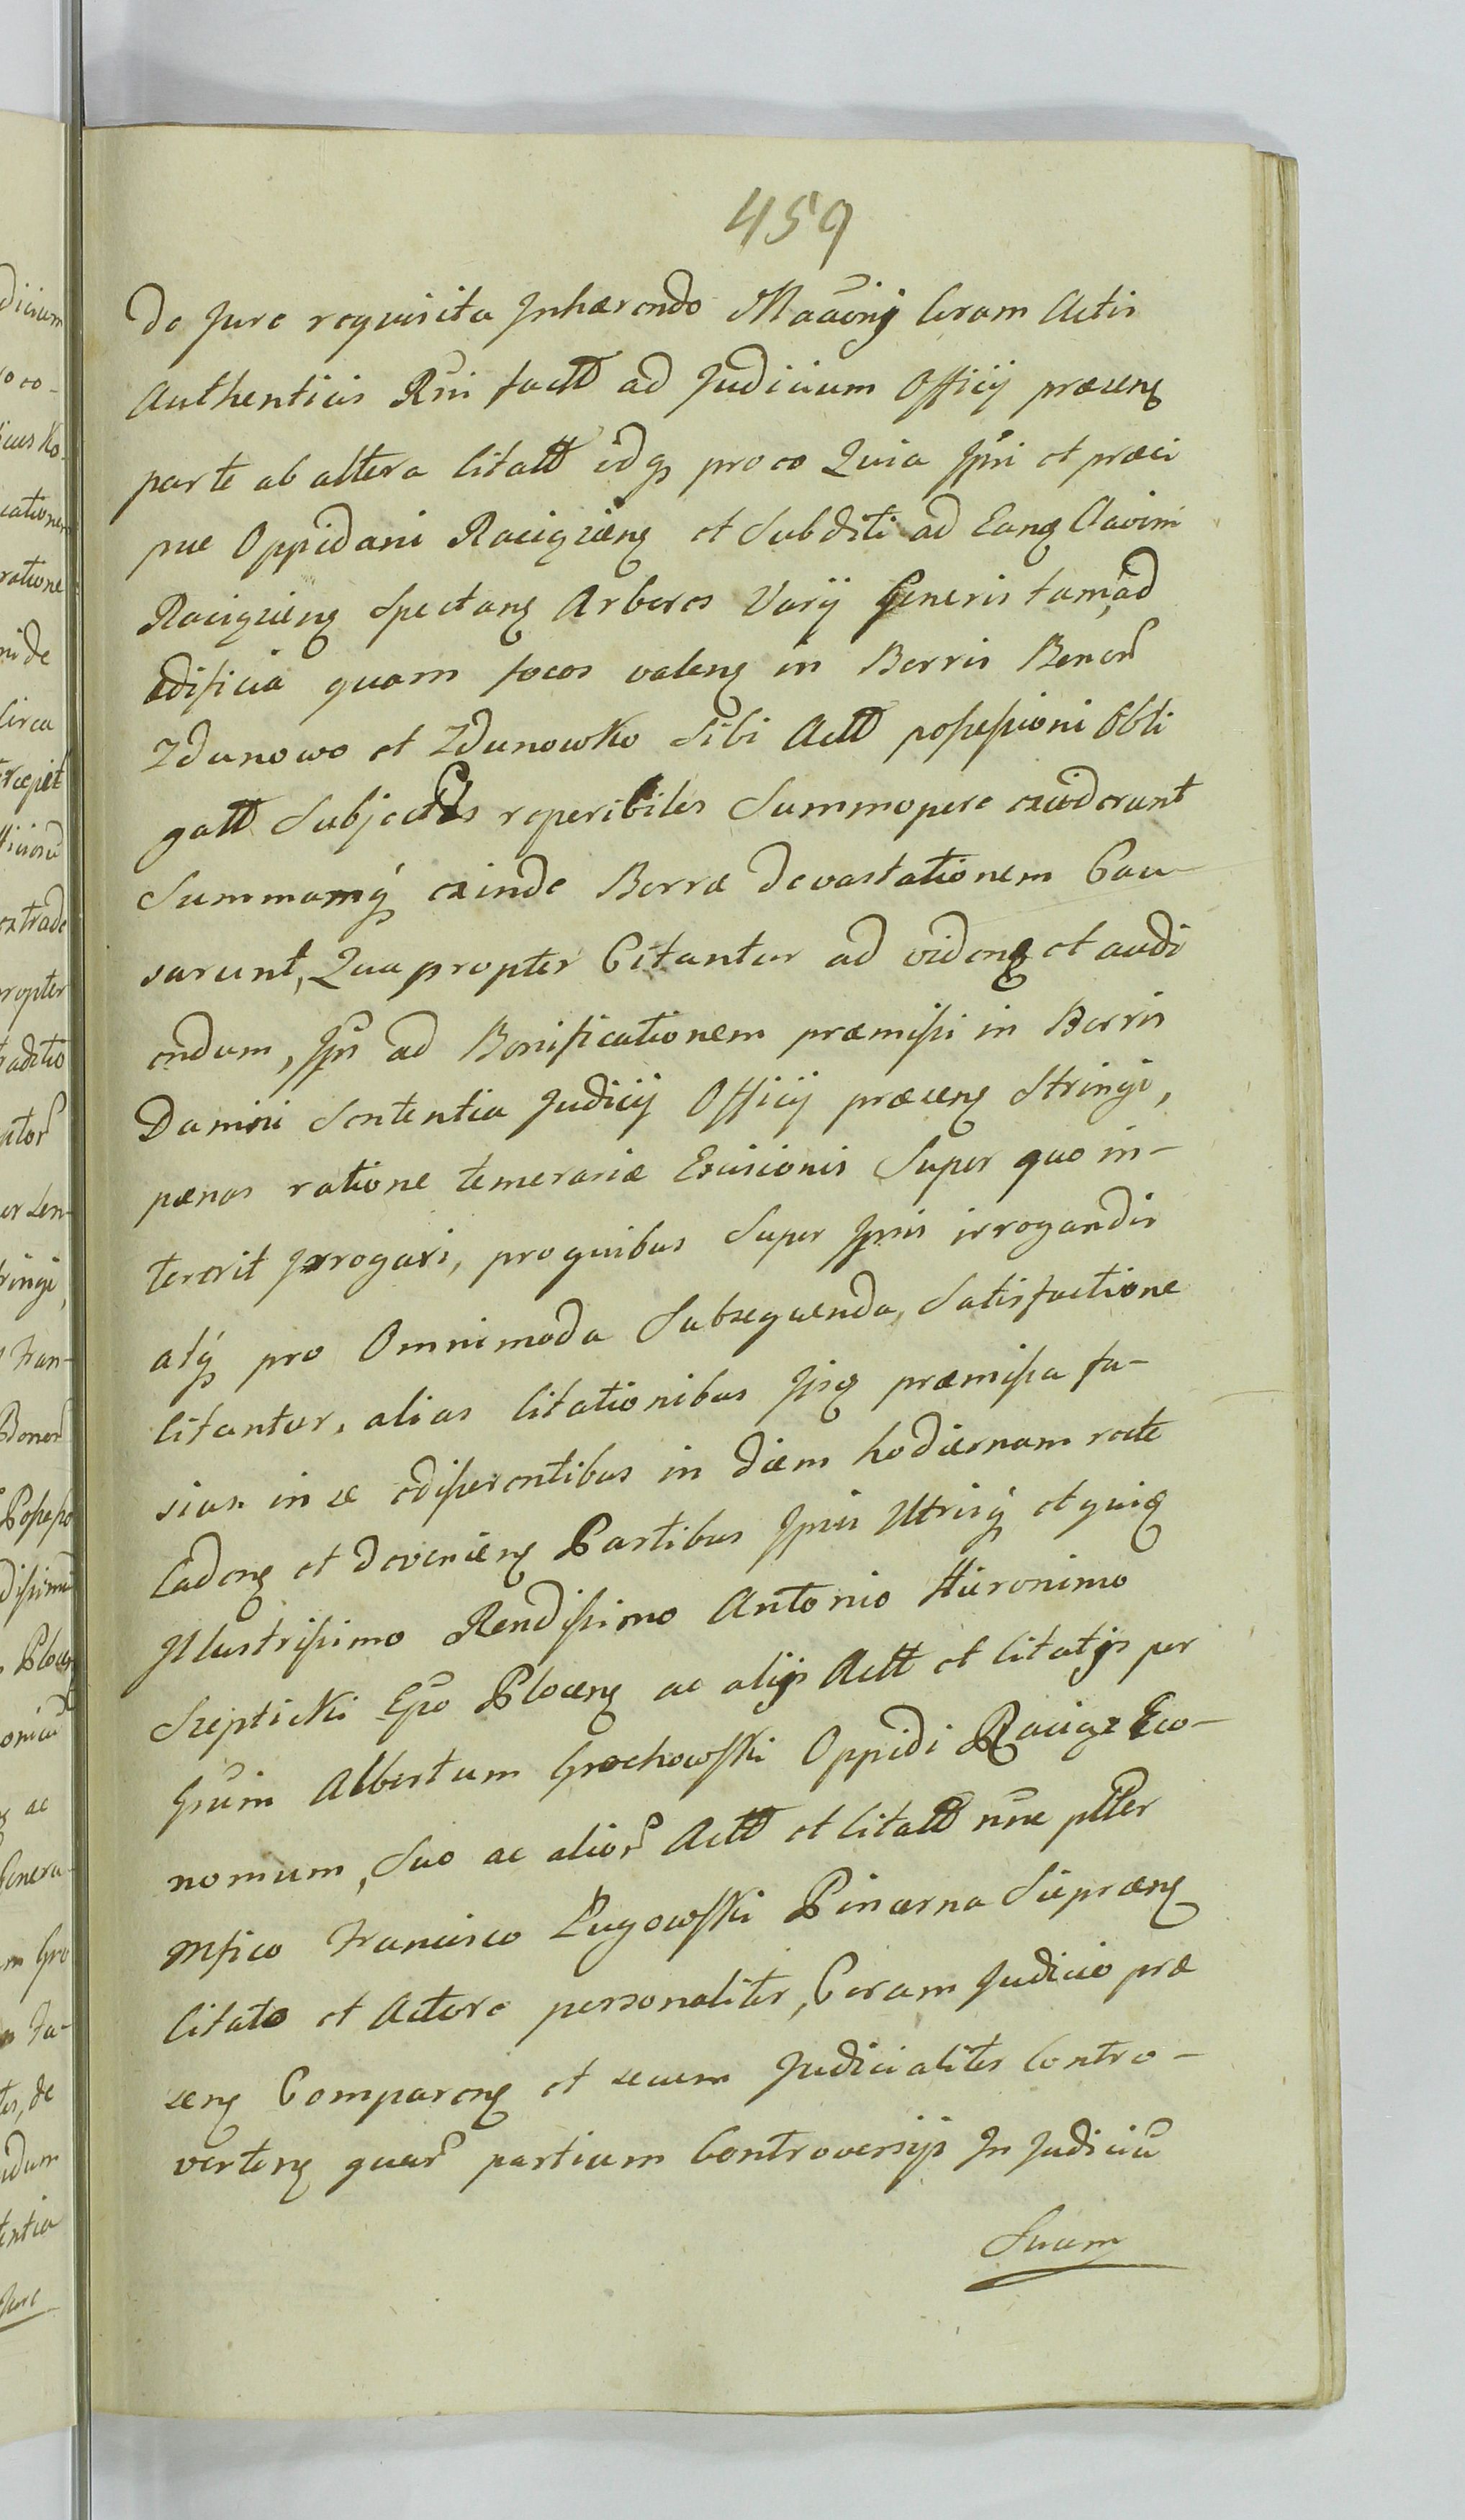 459
de Jure requisita Inhærendo Maāōnij Coram Actis
Authenticis R̃ni factt ad Judicium Officij præsenƷ
parte ab altera Citatt idqȝ pro eo Quia Ipsi et præci
pue Oppidani RaciąziēnƷ et Subditi ad EanƷ Clavim
RaciązienƷ SpectanƷ Arbores Varij Generis tam ad
ædificia quam focos valenƷ in Borris Bonor̃
Zdunowo et Zdunowko Sibi Actt possessioni Obli
gatt Subjectis reperibiles Summopere exciderunt
Summamq́ȝ exinde Borræ devastationem Cau-
sarunt, Qua propter Citantur ad videnƷ et audi
endum, Ip̃s ad Bonificationem præmissi in Borris
Damini Sententia Judicij Officij præsenƷ Stringi,
pænas ratione temerariæ Excisionis Super quo in-
tererit Irrogari, pro quibus Super Ipsis irrogandis
atq́ȝ pro Omnimoda Subsequenda, Satisfactione
Citantur, alias Citationibus IpsƷ præmissa fu-
sius in se edisserentibus in diem hodiernam recte
CadenƷ et devenienƷ Partibus Ipsis Utrisq́ȝ et quidƷ
Illustrissimo Rendissimo Antonio Hieronimo
Szepticki Ep̃o PlocenƷ ac alijs Actt et Citatjs per
G̃sum Albertum Grochowski Oppidi Raciąz Eco-
nomum, Suo ac alior̃ Actt et Citatt ñne pltter
Mfico Francisco Lugowski Pincerna SieprcenƷ
Citato et Actore personaliter, Coram Judicio præ
senƷ ComparenƷ et secum Judicialiter Contro-
vertenƷ quar̃ partium Controversijs In Judiciū
Suum